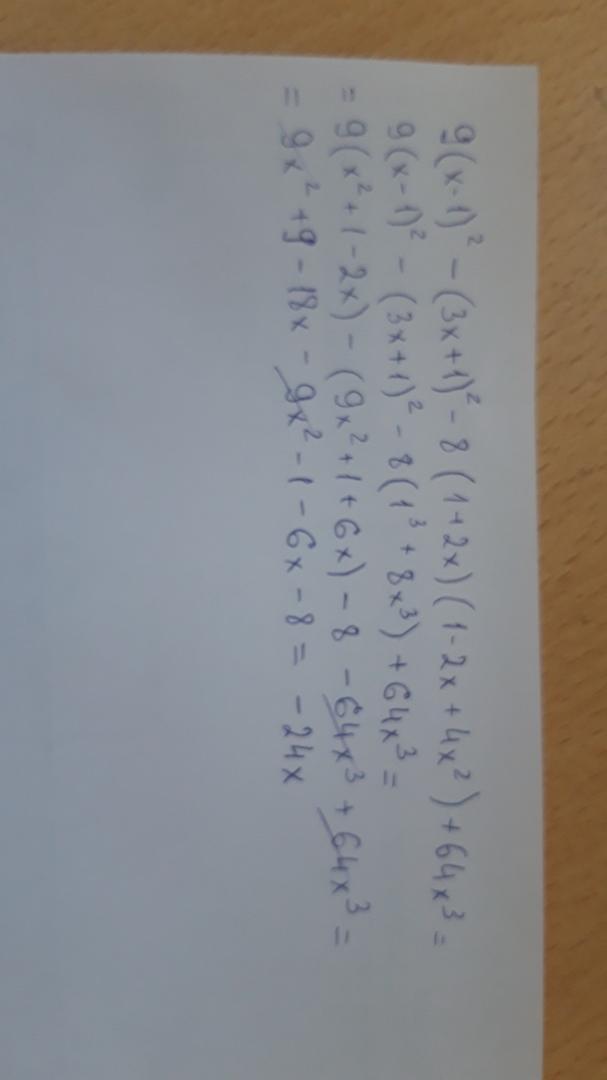 9(x-1)² - (3x+1)² - 8(1+2x)(1-2x+4x²)+64x³ =
9(x-1)² - (3x+1)² - 8(1³ + 8x³) + 64x³ =
= 9(x²+1-2x) - (9x²+1+6x) - 8 - 64x³ + 64x³ =
= 9x² +9 - 18x - 9x² - 1 - 6x - 8 = -24x